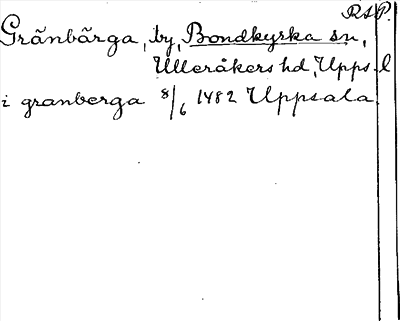 RAP.
Gränbärga, by, Bondkyrka sn,
Ulleråkers hd, Upps. l
i granberga 8/6 1482 Uppsala.